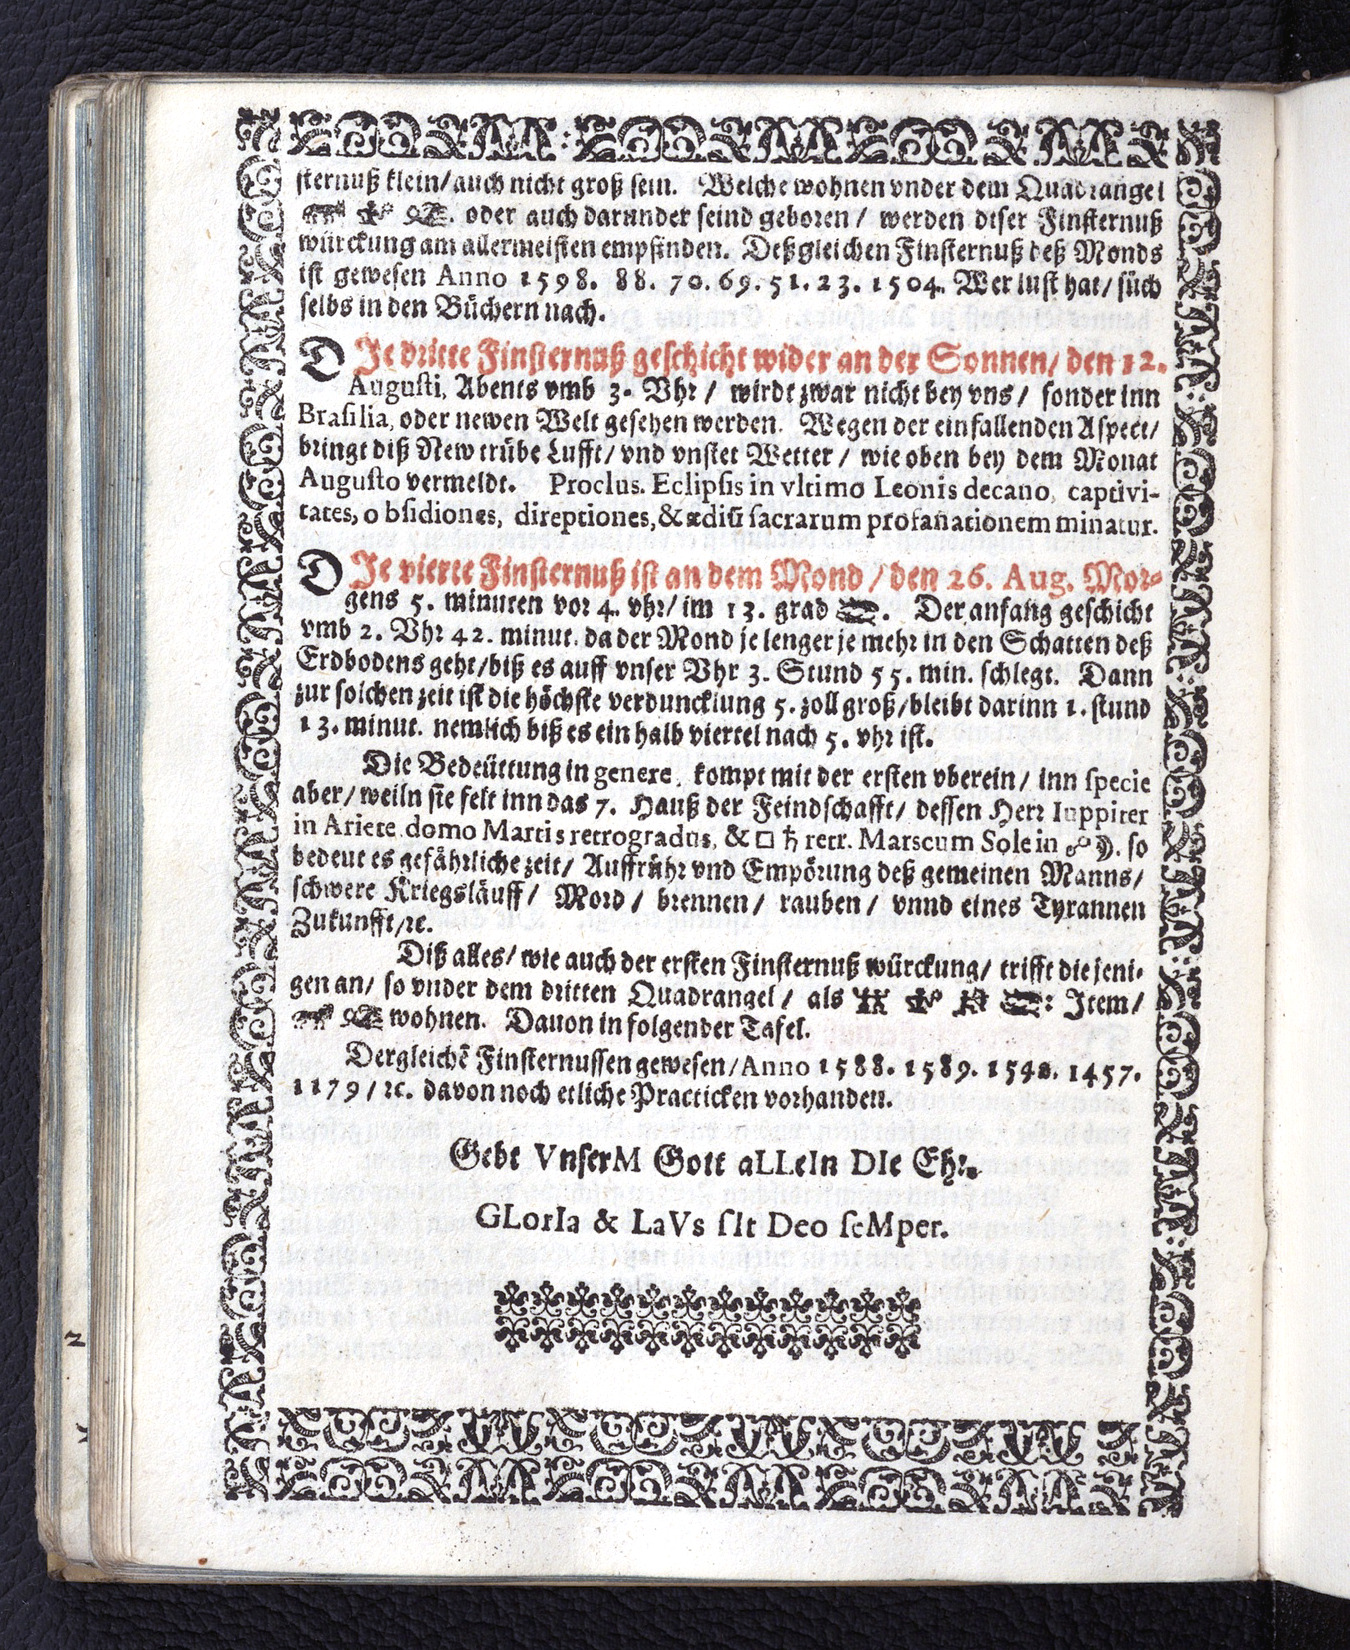 sternuß klein/ auch nicht groß sein. Welche wohnen vnder dem Quadrangel
♉ ♍ ♑. oder auch darunder seind geboren / werden diser Finsternuß
würckung am allermeisten empfinden. Deßgleichen Finsternuß deß Monds
ist gewesen Anno 1598. 88. 70. 69. 51. 23. 1504. Wer lust hat/ süch
selbs in den Büchern nach.
DIe dritte Finsternuß geschicht wider an der Sonnen/ den 12.
Augusti, Abents vmb 3. Vhr / wirdt zwar nicht bey vns / sonder inn
Brasilia, oder newen Welt gesehen werden. Wegen der einfallenden Aspect/
bringt diß New trübe Lufft/ vnd vnstet Wetter / wie oben bey dem Monat
Augusto vermeldt. Proclus. Eclipsis in vltimo Leonis decano, captivi-
tates, obsidiones, direptiones, & ædiū sacrarum profanationem minatur.
DIe vierte Finsternuß ist an dem Mond / den 26. Aug. Mor-
gens 5. minuten vor 4. vhr/ im 13. grad ♓. Der anfang geschicht
vmb 2. Vhr 42. minut. da der Mond je lenger je mehr in den Schatten deß
Erdbodens geht/ biß es auff vnser Vhr 3. Stund 55. min. schlegt. Dann
zur solchen zeit ist die höchste verduncklung 5. zoll groß/ bleibt darinn 1. stund
13. minut. nemlich biß es ein halb viertel nach 5. vhr ist.
Die Bedeüttung in genere, kompt mit der ersten vberein / inn specie
aber/ weiln sie felt inn das 7. Hauß der Feindschafft/ dessen Herr Iuppiter
in Ariete domo Martis retrogradus, & □ ♄ retr. Marscum Sole in ☍ ☽. so
bedeut es gefährliche zeit/ Auffrühr vnd Empörung deß gemeinen Manns/
schwere Kriegsläuff / Mord / brennen / rauben / vnnd eines Tyrannen
Zukunfft/ ꝛc.
Diß alles/ wie auch der ersten Finsternuß würckung/ trifft die jeni-
gen an/ so vnder dem dritten Quadrangel / als ♊ ♍ ♐ ♓: Item/
♉ ♑ wohnen. Dauon in folgender Tafel.
Dergleichē Finsternussen gewesen/ Anno 1588. 1589. 1542. 1457.
1179 / ꝛc. davon noch etliche Practicken vorhanden.
Gebt VnserM Gott aLLeIn DIe Ehr.
GLorIa & LaVs sIt Deo seMper.